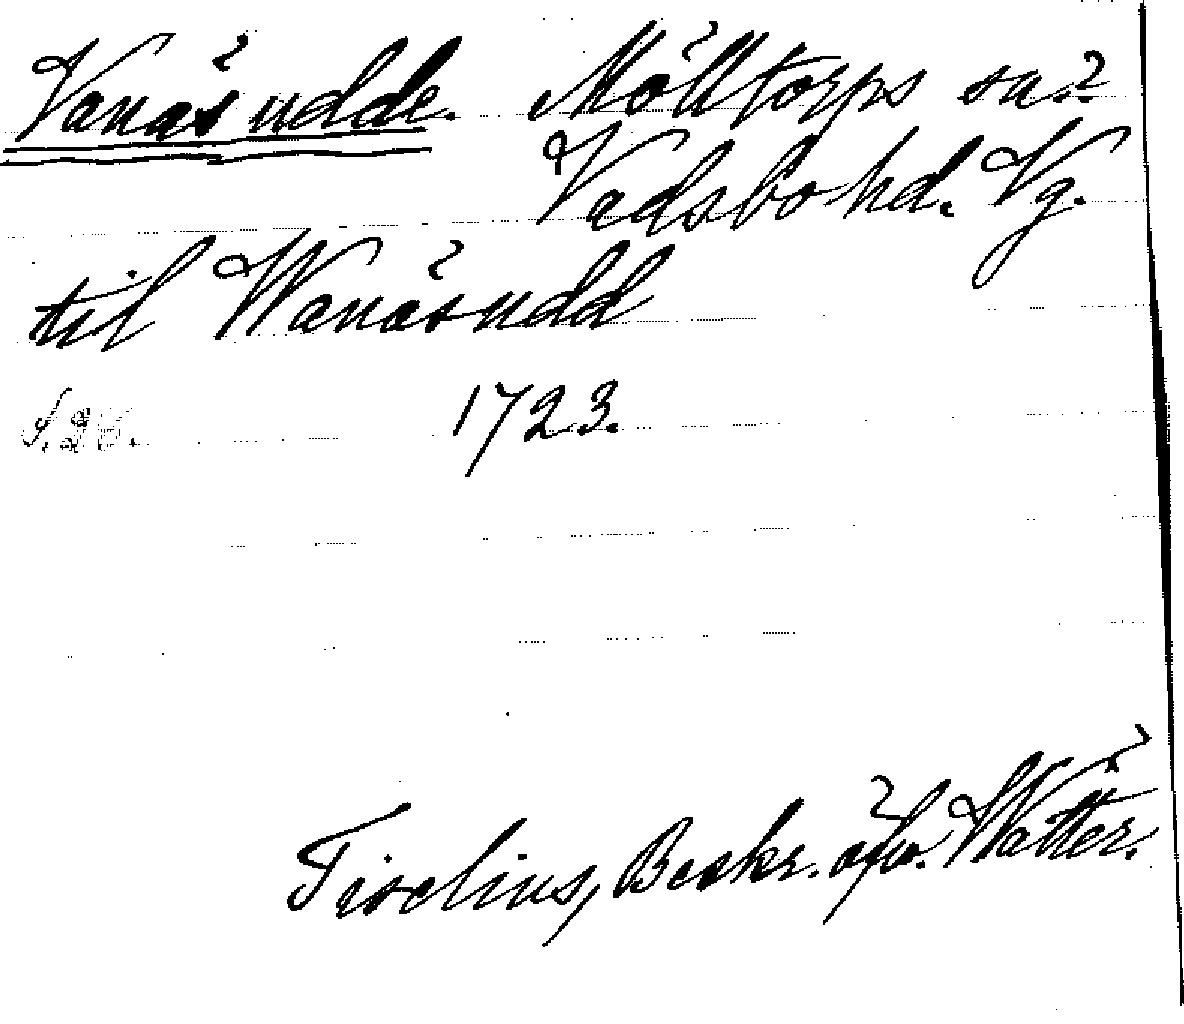 Vanäs udde. Mölltorps sn?
Vadsbo hd. Vg.
til Wanäsudd
1723.
Tiselius, Beskr. öfw. Wätter.